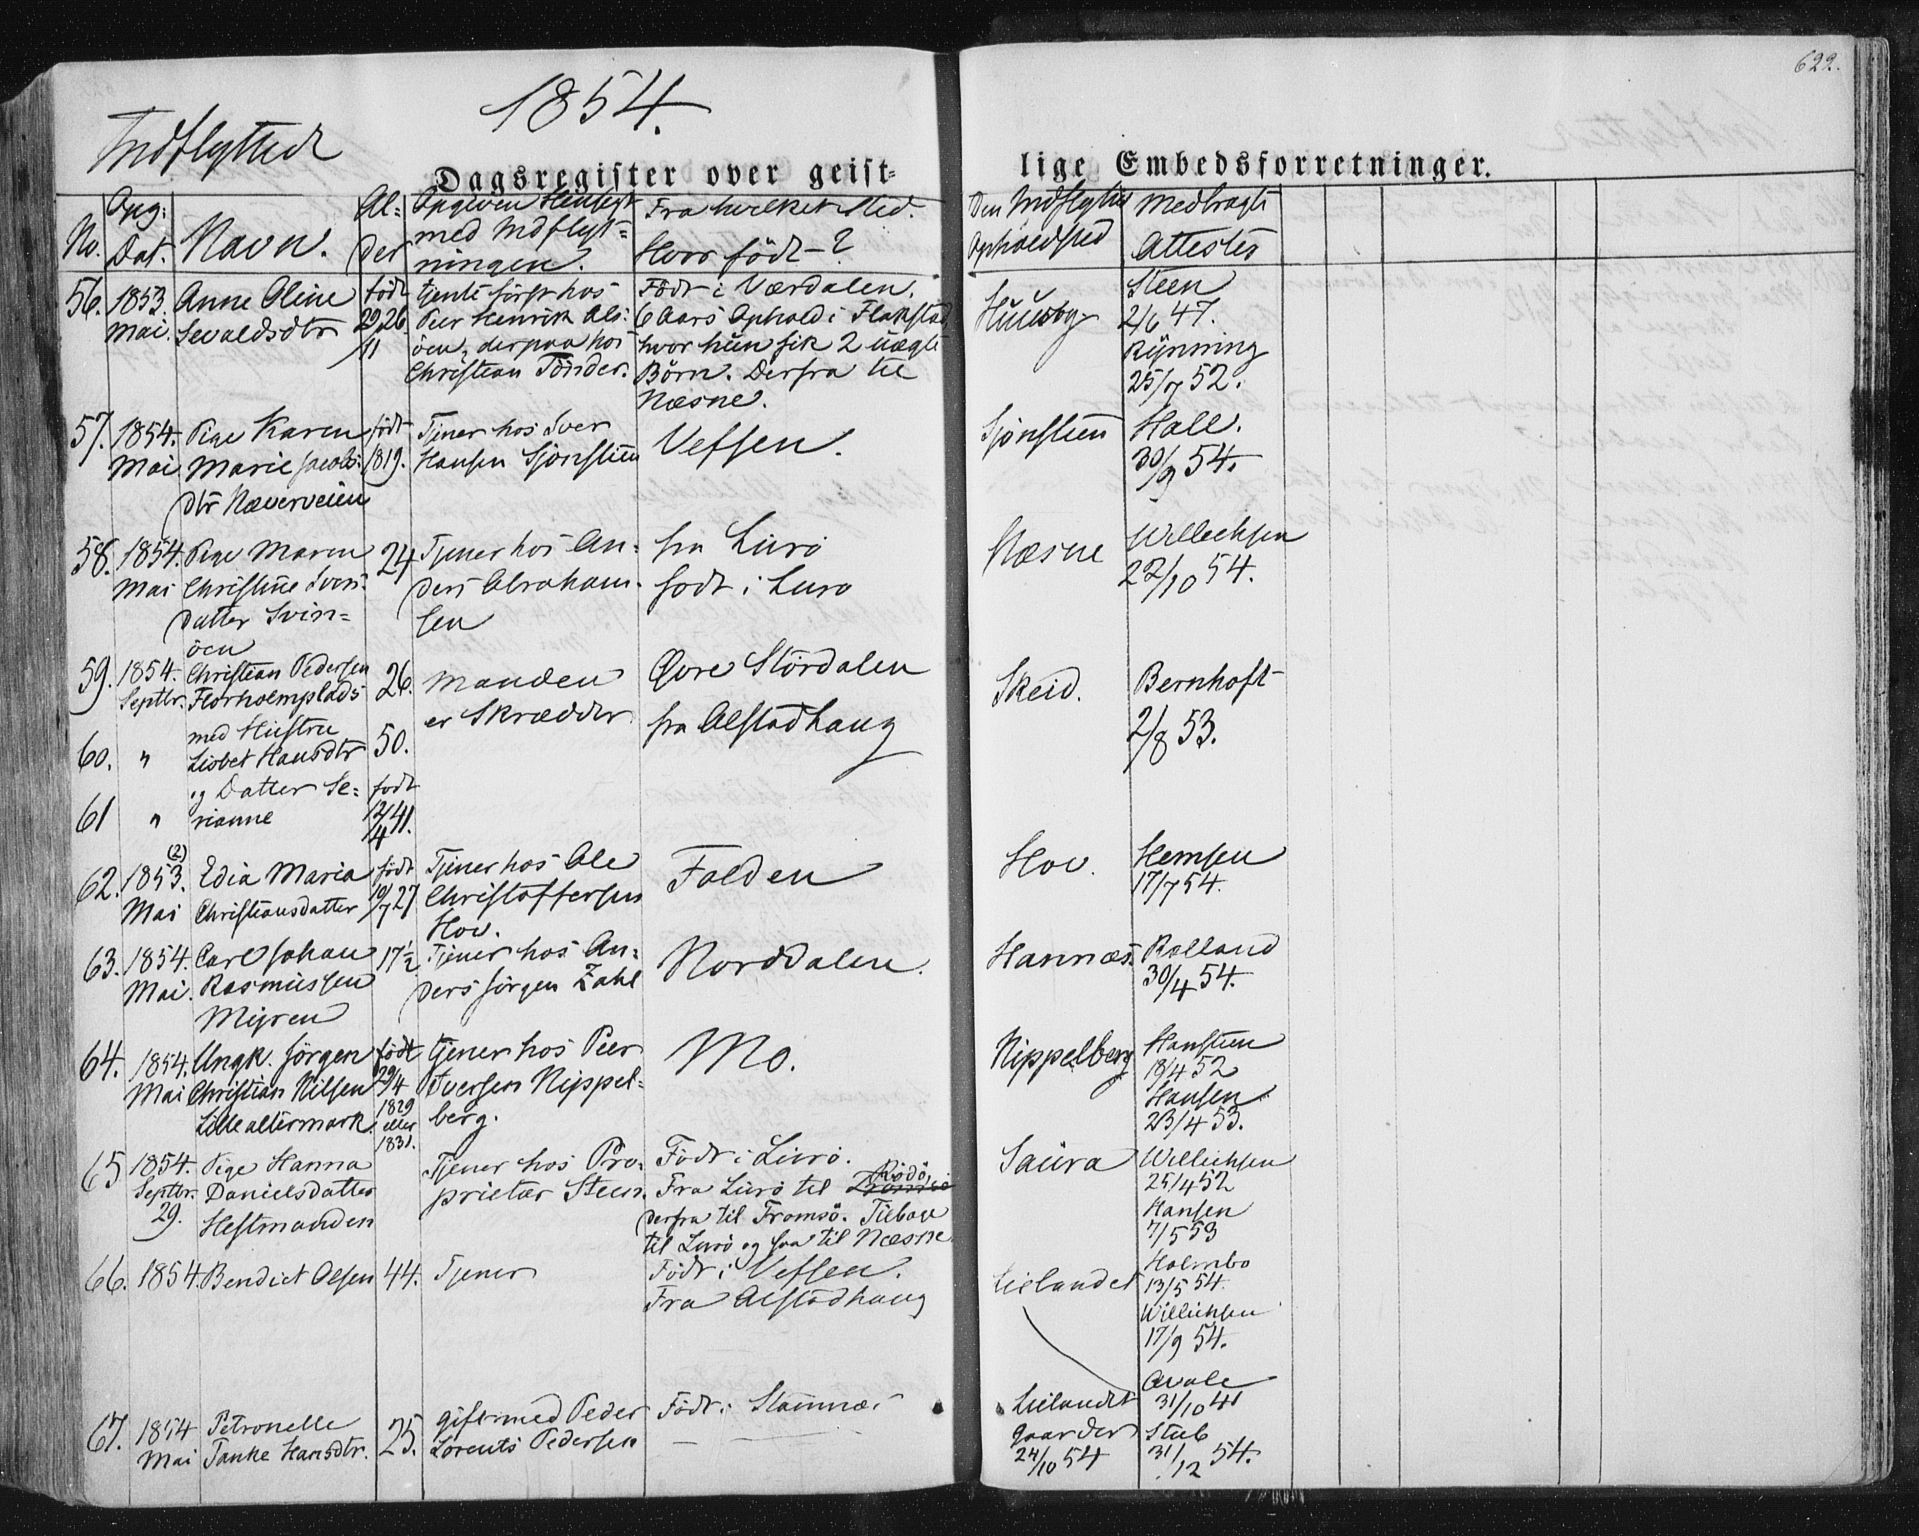 622.
1854.
Indflyttede
Dagsregister over geist-
lige Embedsforretninger.
No.
Opg:
Dat.
Navn.
Al-
der
Opgiven Hensigt
med Indflyt-
ningen.
Fra hvilket Sted.
Hvor født-?
Den Indflyttedes
Opholdsted
Medbragte
Attester
56.
1853.
Mai.
Anne Oline
Sevaldsdtr
født
29/11 26
tjente først hos
Peer Henrik Als-
öen, derpaa hos
Christian Tönder.
Født i Værdalen.
6 Aars Ophold i Flakstad
hvor hun fik 2 uægte
Börn. Derfra til
Næsne.
Huusby
Steen
2/6 47.
Rynning
25/7 52.
57.
1854.
Mai
Pige Karen
Marie Jacobs-
dtr Næverveien
født
1819.
Tjener hos Iver
Hansen Sjönsteen
Vefsen.
Sjönsteen
Hall.
30/9 54.
58.
1854.
Mai
Pige Maren
Christine Svens
datter Svin-
öen
24
Tjener hos An-
ders Abraham-
sen
fra Lurö
født i Lurö
Næsne
Wellechsen
22/10 54.
59.
1854.
Septbr.
Christian Pedersen
Florholmplads
26.
Manden
er Skrædder.
Övre Stördalen
fra Alstadhaug
Skeid.
Bernhoft
2/8 53.
60.
"
med Hustru
Lisbet Hansdtr
50.
61
"
og Datter Se-
rianne
født
12/4 41.
62.
1853. (2)
Mai
Edia Maria
Christiansdatter
født
10/7 27
Tjener hos Ole
Christoffersen
Hov.
Folden
Hov.
Hemsen
17/7 54.
63.
1854.
Mai.
Carl Johan
Rasmussen
Myren
17½
Tjener hos An-
ders Jörgen Zahl
Norddalen.
Hannæs.
Rolland
30/4 54.
64.
1854.
Mai
Ungk. Jörgen
Christian Nilsen
Lille altermark
født
29/4
1829
eller
1831.
tjener hos Peer
Iversen Nippel-
berg.
Mo.
Nippelberg
Hansteen
18/4 52
Hansen
23/4 53.
65
1854.
Septbr.
29.
Pige Hanna
Danielsdatter
Hestmanden
Tjener hos Pro-
prietær Steen.
Født i Lurö.
Fra Lurö til Rödö,
derfra til Tromsö. Tilbage
til Lurö og saa til Næsne
Saura
Wellechsen
25/4 52
Hansen
7/5 53
66.
1854.
Bendict Olsen
44.
Tjener
Født i Vefsen.
Fra Alstadhaug
Leilandet
Holmbo
13/5 54.
Wellechsen
17/9 54.
67.
1854
Mai
Petronelle
Tanke Hansdtr.
25.
gift med Peder
Lorents Pedersen
Født i Stamnæs
Leilandet
Gaarder
24/10 54
31/10 41
Stub
31/12 54.